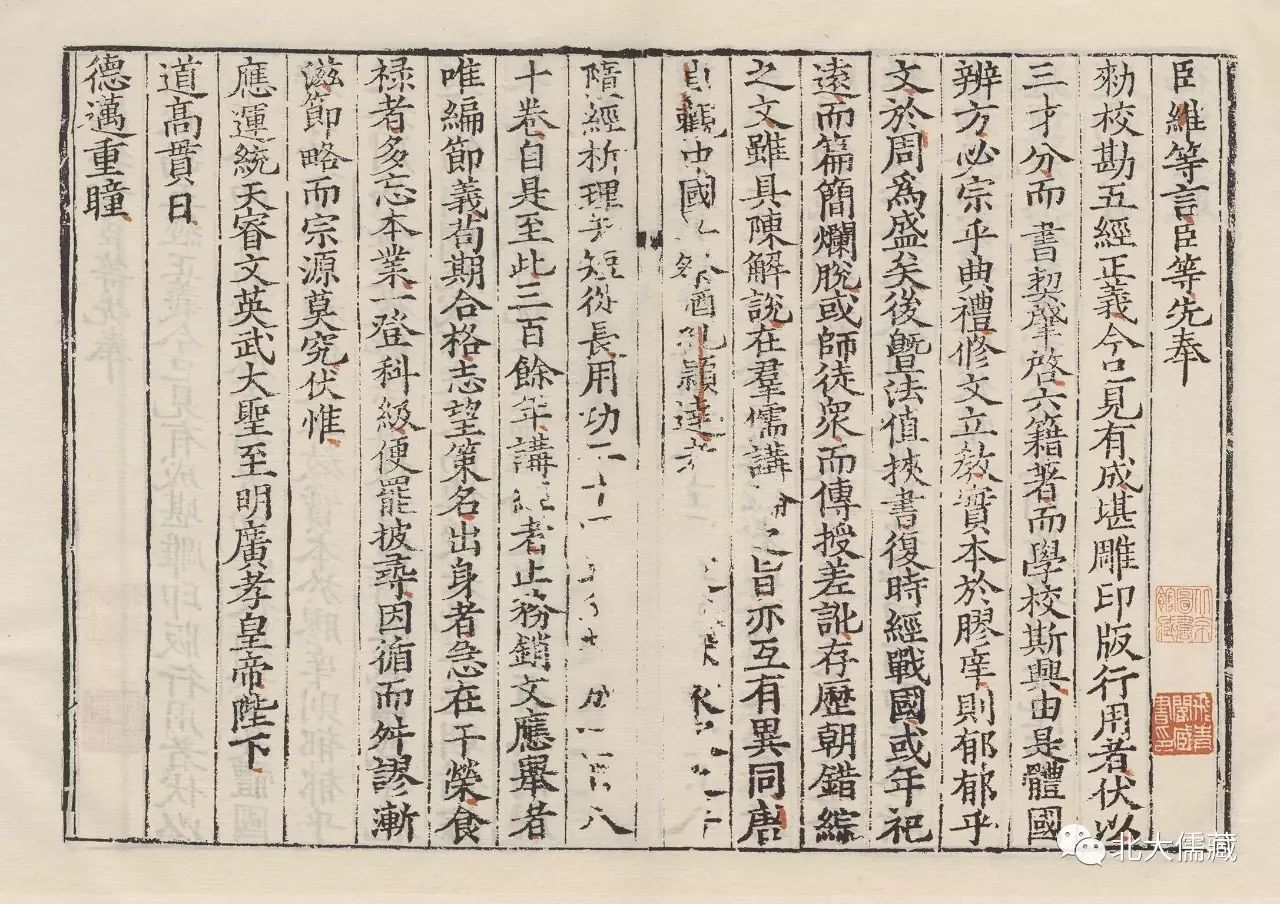 臣維等言臣等先奉
勑校勘五經正義今已見有成堪雕印版行用者伏以
三才分而書契肇啓六籍著而學校斯興由是體國
辨方必宗乎典禮修文立教實本於膠庠則郁郁乎
文於周爲盛矣後曁法值挾書復時經戰國或年祀
遠而篇簡爛脫或師徒衆而傳授差訛存歷朝錯綜
之文雖具陳解說在羣儒講之旨亦互有異同唐
貞觀中國祭酒孔穎達考
隋經析理去短從長用功二十四八
十卷自是至此三百餘年講經者止務銷文應舉者
唯編節義苟期合格志望策名出身者急在干榮食
禄者多忘本業一登科級便罷披尋因循而舛謬漸
滋節略而宗源莫究伏惟
應運統天睿文英武大聖至明廣孝皇帝陛下
道高貫日
德邁重瞳
北大儒藏